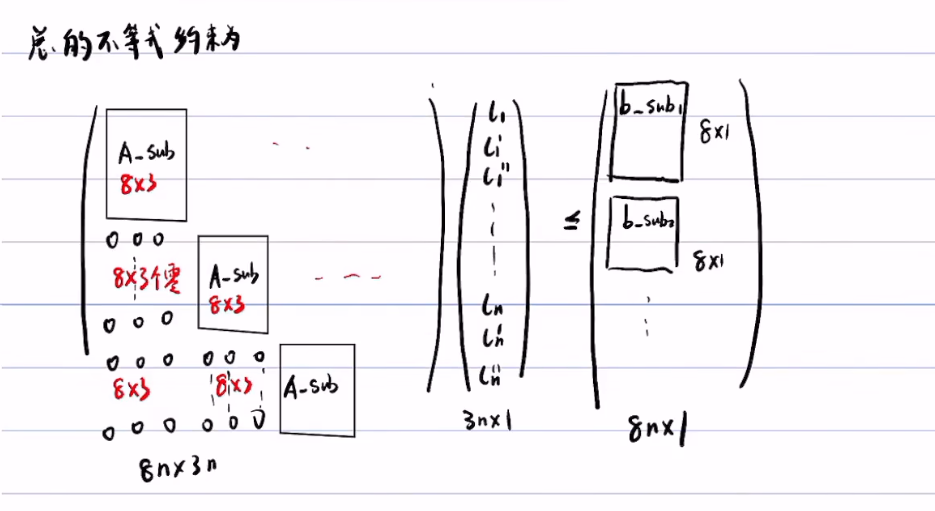 总的不等式约束为
A_sub
8×3
0 0 0
8×3个零
0 0 0
A_sub
8×3
0 0 0
8×3
0 0 0
0 0 0
8×3
0 0 0
A_sub
8n×3n
l₁
l₁'
l₁''
lₙ
lₙ'
lₙ''
3n×1
≤
b_sub₁
8×1
b_sub₂
8×1
8n×1